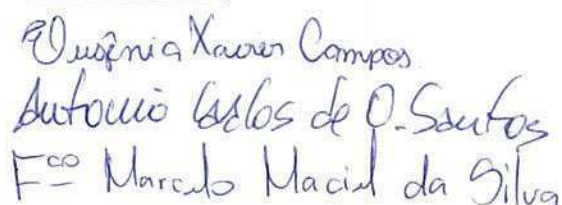 Eugênia Xavier Campos
Antonio Carlos de O. Santos
Fco Marcelo Maciel da Silva